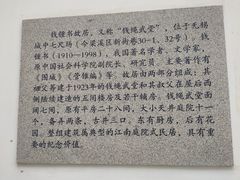 钱锺书故居，又称“钱绳武堂”，位于无锡
城中七尺场（今梁溪区新街巷30-1、32号）。钱
锺书（1910-1998），我国著名学者、文学家，
原中国社会科学院副院长、研究员，主要著作有
《围城》《管锥编》等。故居由两部分组成：其
祖父养建于1923年的钱绳武堂和其叔父在屋后西
侧陆续建造的五间楼房及若干辅房。钱绳武堂面
阔七间，原有平房二十八间，大小天井庭院十一
个，备弄两条，古井三口，东有厨房，后有花
园。整组建筑属典型的江南庭院式民居，具有重
要的纪念价值。